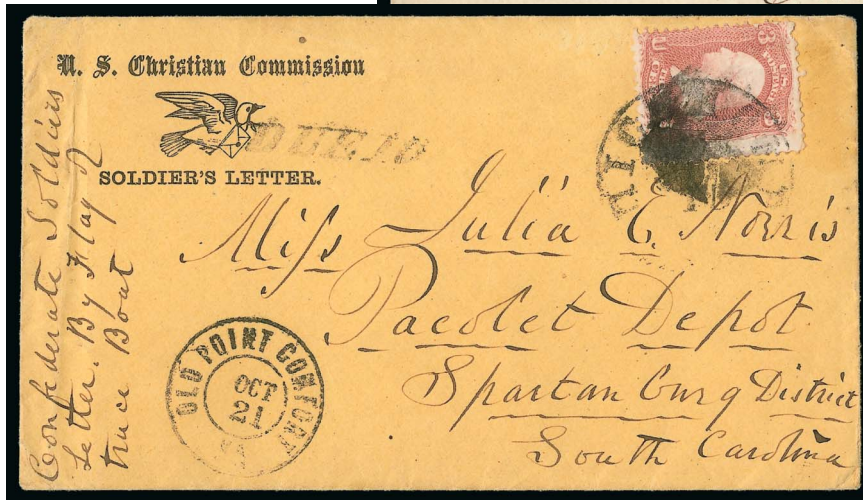 U. S. Christian Commission
SOLDIER'S LETTER.
DUE 10
3 U.S. POSTAGE 3
Confederate Soldiers
Letter. By Flag of
truce Boat
Miss Julia E. Norris
Pacolet Depot
Spartanburg District
South Carolina
OLD POINT COMFORT
OCT
21
VA